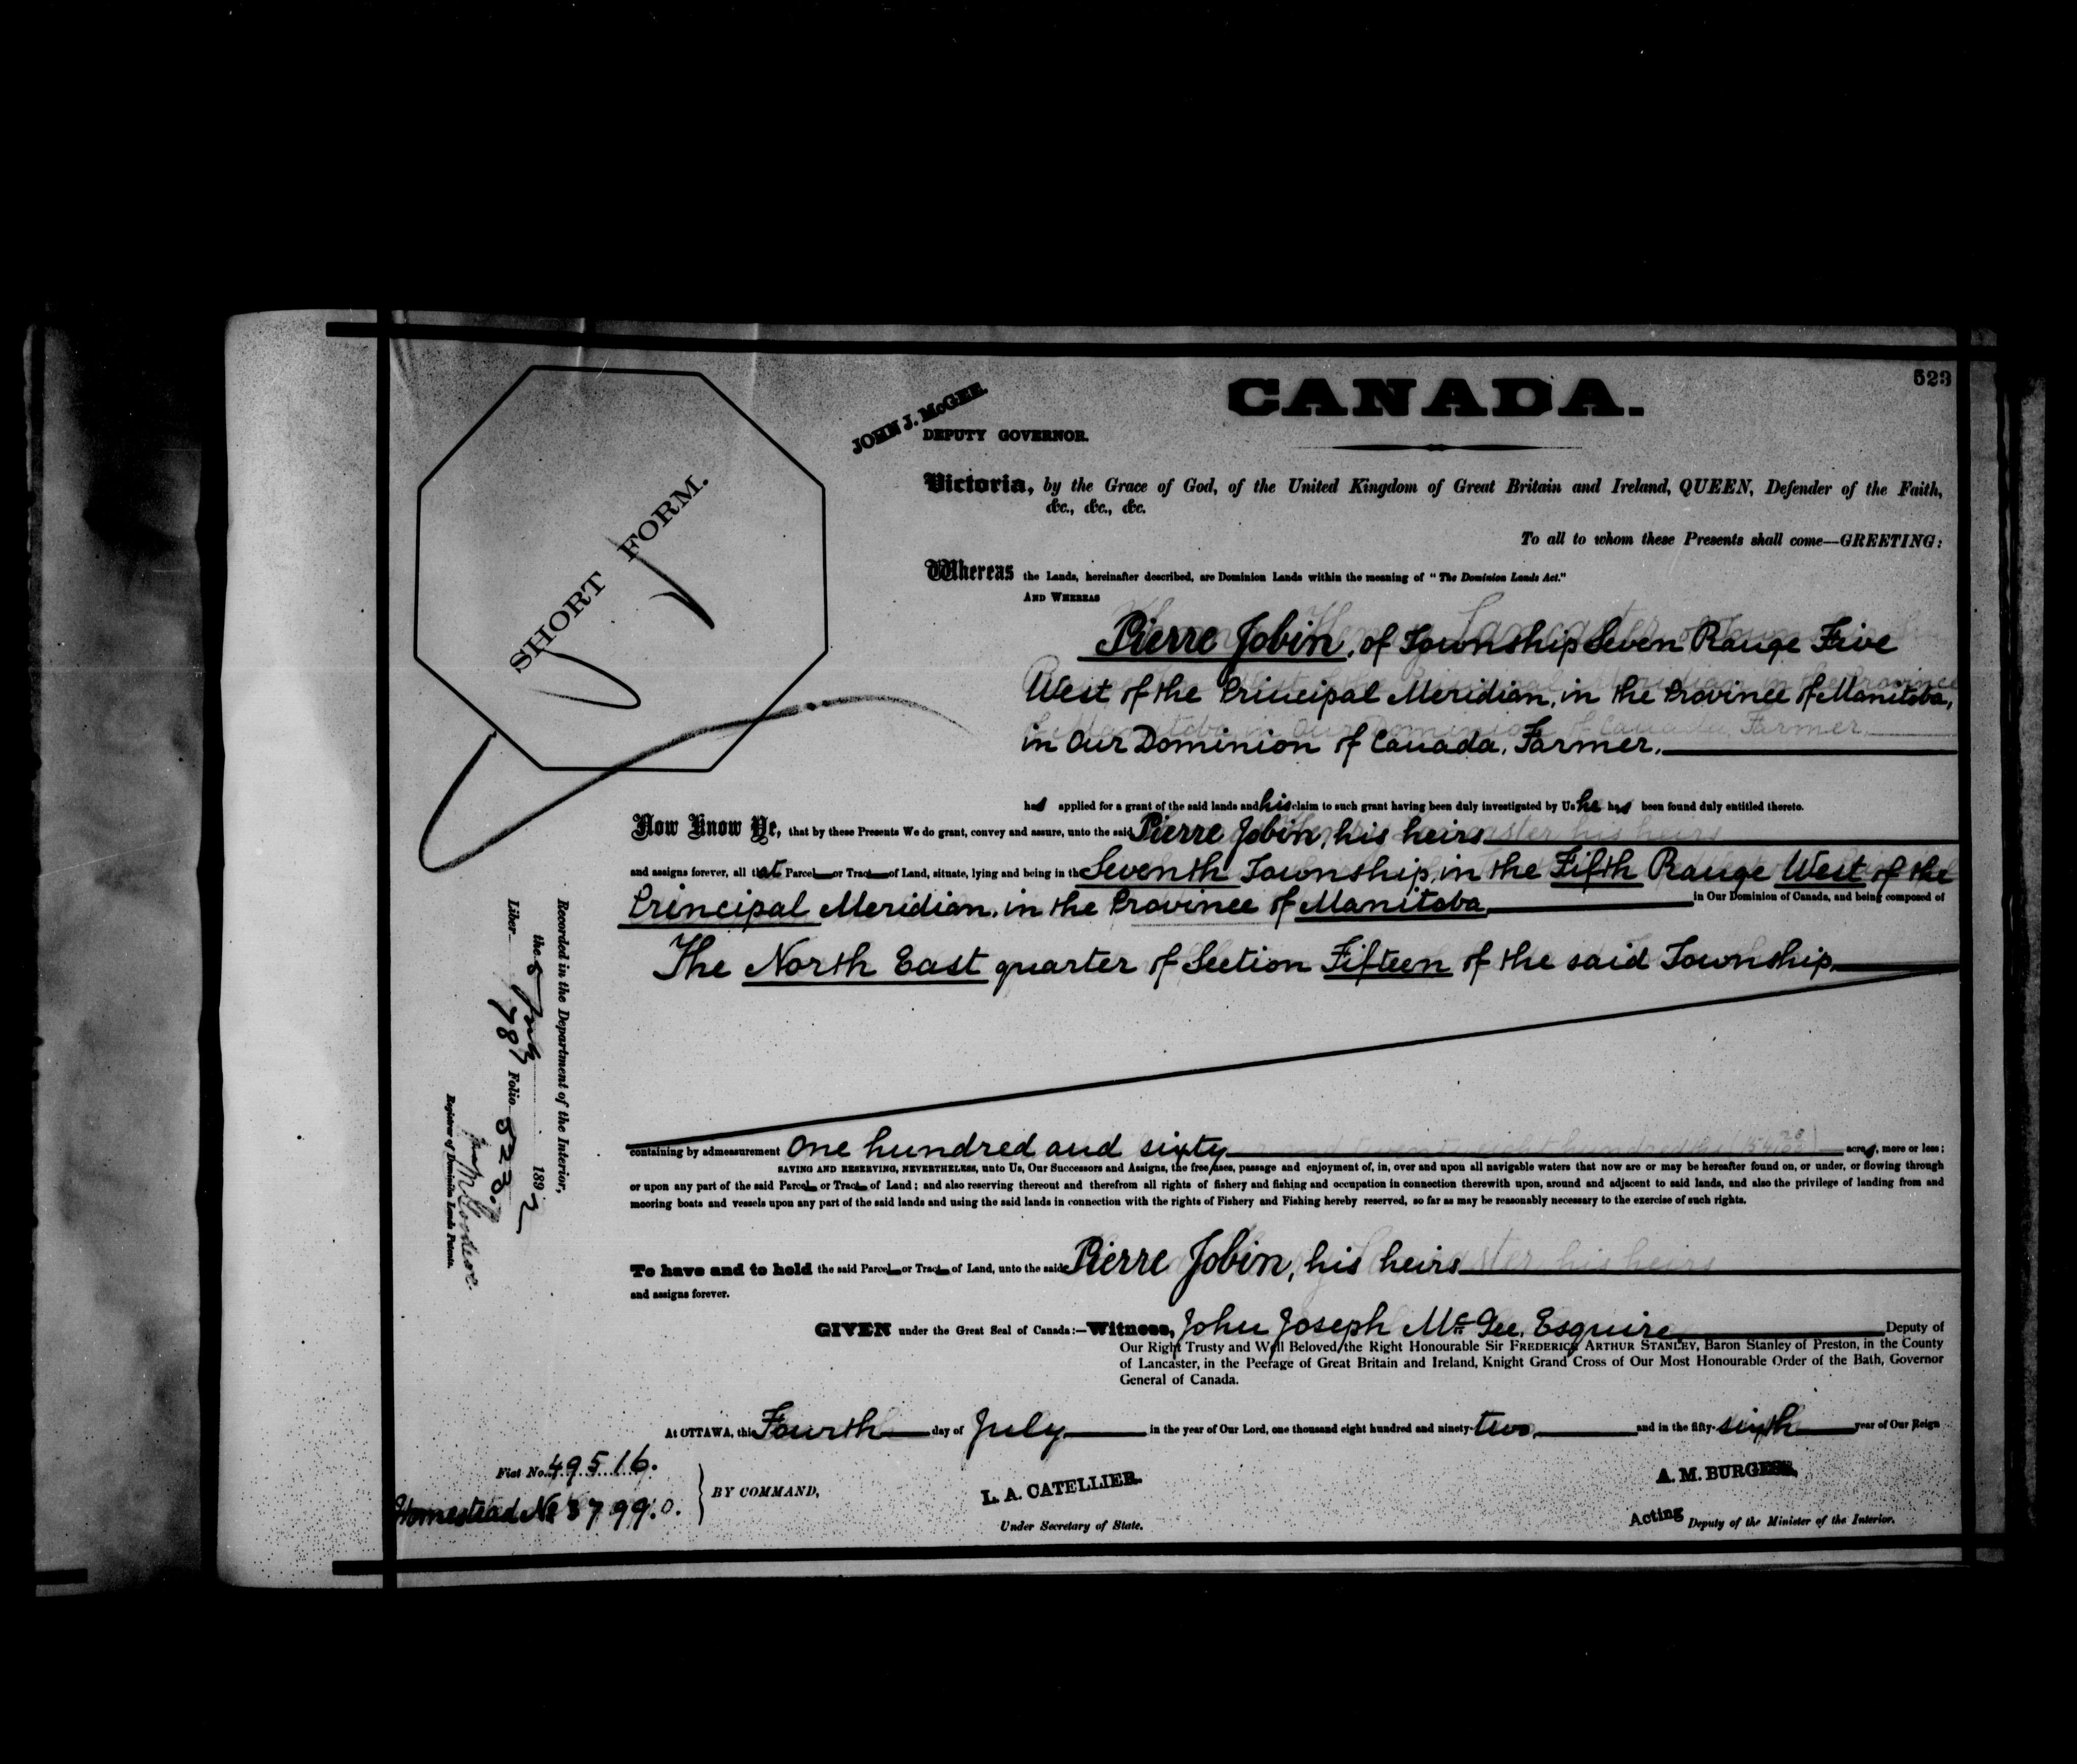 523
CANADA.
JOHN J. McGEE.
DEPUTY GOVERNOR.
SHORT FORM.
Victoria, by the Grace of God, of the United Kingdom of Great Britain and Ireland, QUEEN, Defender of the Faith,
&c., &c., &c.
To all to whom these Presents shall come—GREETING:
Whereas the Lands, hereinafter described, are Dominion Lands within the meaning of "The Dominion Lands Act."
AND WHEREAS
Pierre Jobin, of Township Seven Range Five
West of the Principal Meridian, in the Province of Manitoba,
in Our Dominion of Canada, Farmer,
had applied for a grant of the said lands and his claim to such grant having been duly investigated by Us he has been found duly entitled thereto.
Now Know Ye, that by these Presents We do grant, convey and assure, unto the said Pierre Jobin, his heirs
and assigns forever, all that Parcel or Tract of Land, situate, lying and being in the Seventh Township, in the Fifth Range West of the
Principal Meridian, in the Province of Manitoba in Our Dominion of Canada, and being composed of
The North East quarter of Section Fifteen of the said Township
containing by admeasurement One hundred and sixty acres, more or less;
SAVING AND RESERVING, NEVERTHELESS, unto Us, Our Successors and Assigns, the free uses, passage and enjoyment of, in, over and upon all navigable waters that now are or may be hereafter found on, or under, or flowing through
or upon any part of the said Parcel or Tract of Land; and also reserving thereout and therefrom all rights of fishery and fishing and occupation in connection therewith upon, around and adjacent to said lands, and also the privilege of landing from and
mooring boats and vessels upon any part of the said lands and using the said lands in connection with the rights of Fishery and Fishing hereby reserved, so far as may be reasonably necessary to the exercise of such rights.
To have and to hold the said Parcel or Tract of Land, unto the said Pierre Jobin, his heirs
and assigns forever.
GIVEN under the Great Seal of Canada:—Witness, John Joseph McGee, Esquire Deputy of
Our Right Trusty and Well Beloved the Right Honourable Sir FREDERICK ARTHUR STANLEY, Baron Stanley of Preston, in the County
of Lancaster, in the Peerage of Great Britain and Ireland, Knight Grand Cross of Our Most Honourable Order of the Bath, Governor
General of Canada.
At OTTAWA, this Fourth day of July in the year of Our Lord, one thousand eight hundred and ninety-two and in the fifty-sixth year of Our Reign
Fiat No. 49516.
Homestead No 37990.
BY COMMAND,
L. A. CATELLIER.
Under Secretary of State.
A. M. BURGESS,
Acting Deputy of the Minister of the Interior.
Recorded in the Department of the Interior,
the 5 July 1892
Liber 787 Folio 523
Registrar of Dominion Lands Patents.